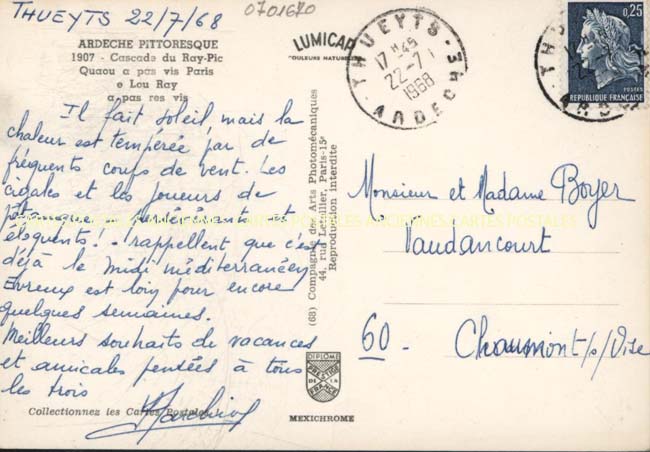 THUEYTS 22/7/68
0701670
ARDECHE PITTORESQUE
1907 - Cascade du Ray-Pic
Quaou a pas vis Paris
e Lou Ray
a pas res vis
Il fait soleil mais la
chaleur est tempérée par de
fréquents coups de vent. Les
cigales et les joueurs de
pétanque et
éloquents! rappellent que c'est
déjà le midi méditerranéen
Evreux est loin pour encore
quelques semaines.
Meilleurs souhaits de vacances
et amicales pensées à tous
les trois
Collectionnez les Cartes Postales
LUMICAP
COULEURS NATURELLES
(68) Compagnie des Arts Photomécaniques
44, rue Letellier, Paris-15e
Reproduction interdite
DIPLOME
PRESTIGE
DE LA
FRANCE
MEXICHROME
THUEYTS
17 H45
22-7
1968
ARDECHE
0,25
POSTES
REPUBLIQUE FRANÇAISE
Monsieur et Madame Boyer
Vaudancourt
60 - Chaumont/s/Oise
CARTES POSTALES ANCIENNES CARTES POSTALES